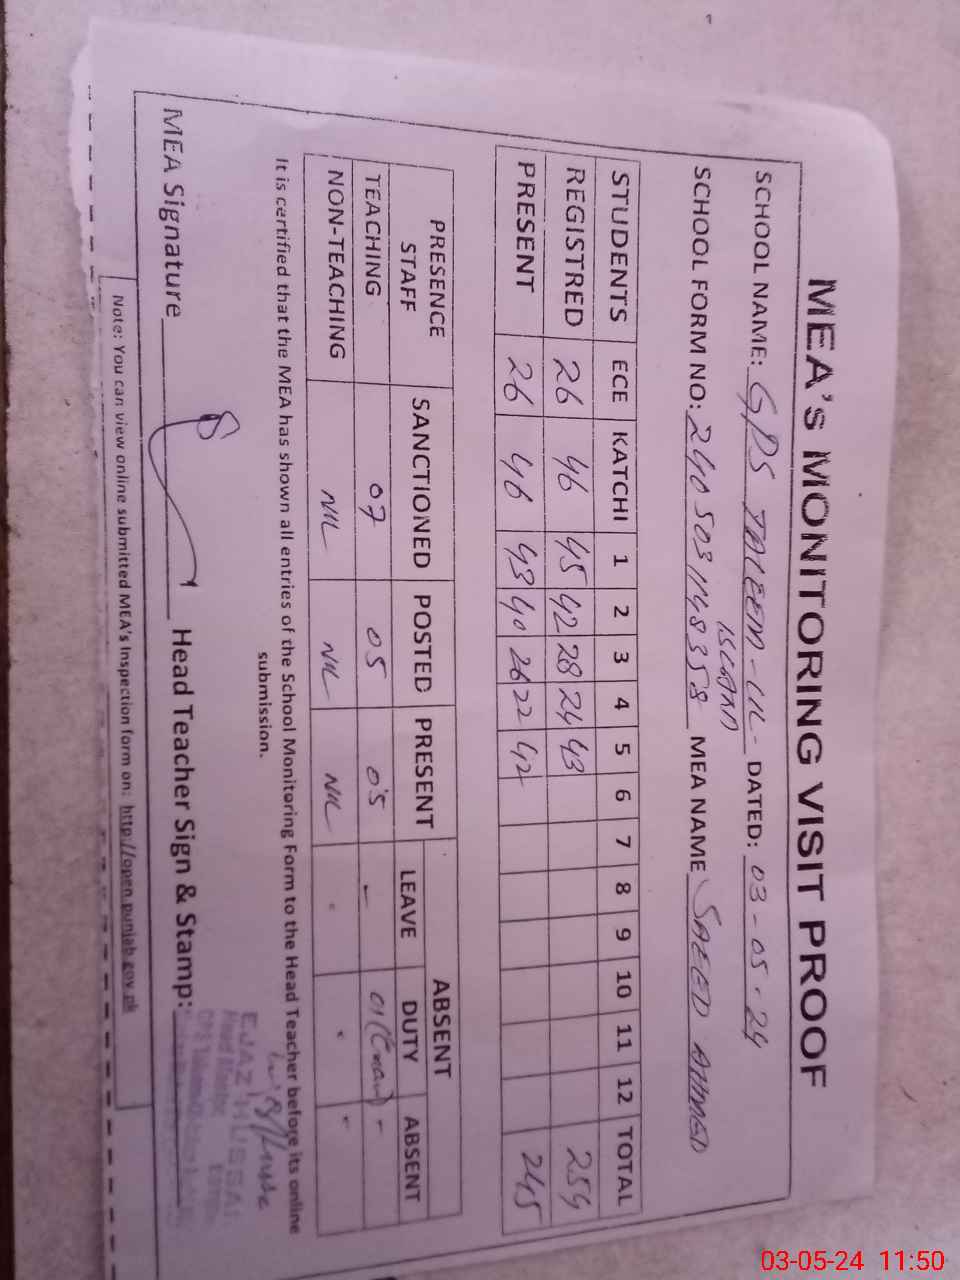 MEA's MONITORING VISIT PROOF
SCHOOL NAME: GPS TALEEM-UL- DATED: 03-05-24
ISLAM
SCHOOL FORM NO: MEA NAME SAEED AHMED
STUDENTS ECE KATCHI 1 2 3 4 5 6 7 8 9 10 11 12 TOTAL
REGISTRED 26 46 45 42 28 24 43 254
PRESENT 26 46 43 40 26 22 42 245
PRESENCE STAFF SANCTIONED POSTED PRESENT ABSENT
LEAVE DUTY ABSENT
TEACHING 07 05 05 - 01 -
NON-TEACHING NIL NIL NIL - - -
It is certified that the MEA has shown all entries of the School Monitoring Form to the Head Teacher before its online
submission.
MEA Signature Head Teacher Sign & Stamp:
EJAZ HUSSAIN
Head Master
Note: You can view online submitted MEA's Inspection form on: http://open.punjab.gov.pk
03-05-24 11:50